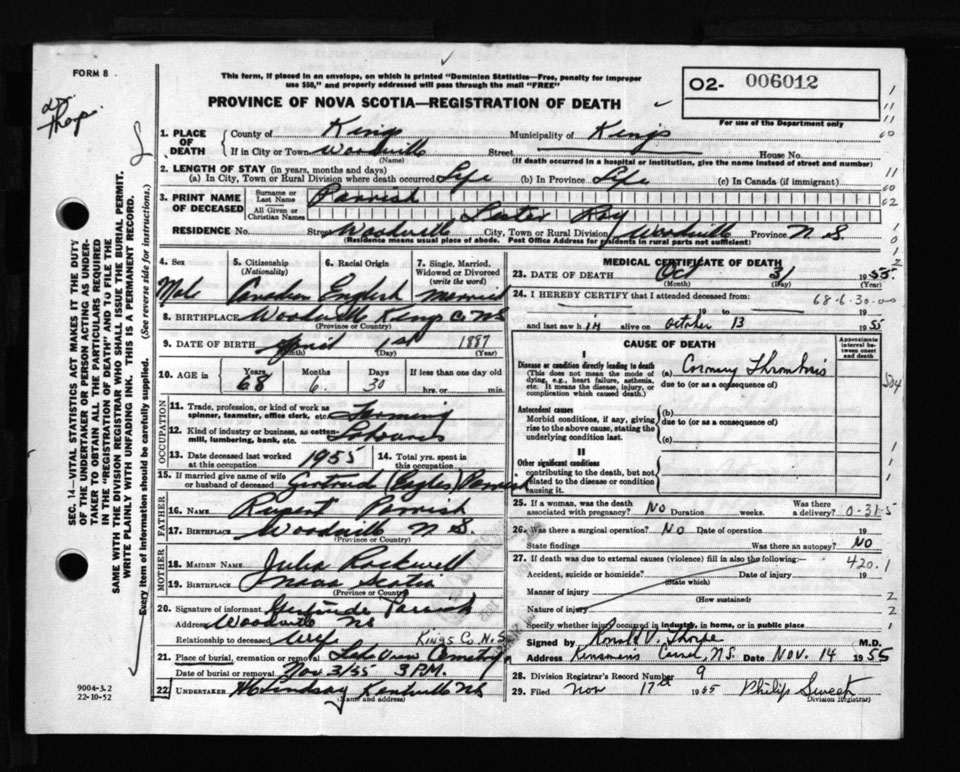 FORM 8
This form, if placed in an envelope, on which is printed "Dominion Statistics—Free, penalty for improper
use $50," and properly addressed will pass through the mail "FREE"
O2- 006012
For use of the Department only
PROVINCE OF NOVA SCOTIA—REGISTRATION OF DEATH
SEC. 14—VITAL STATISTICS ACT MAKES IT THE DUTY
OF THE UNDERTAKER OR PERSON ACTING AS UNDER-
TAKER TO OBTAIN ALL THE PARTICULARS REQUIRED
IN THE "REGISTRATION OF DEATH" AND TO FILE THE
SAME WITH THE DIVISION REGISTRAR WHO SHALL ISSUE THE BURIAL PERMIT.
WRITE PLAINLY WITH UNFADING INK. THIS IS A PERMANENT RECORD.
Every item of information should be carefully supplied. (See reverse side for instructions.)
1. PLACE OF DEATH County of Kings Municipality of Kings
If in City or Town Woodville Street House No.
(Name) (If death occurred in a hospital or institution, give the name instead of street and number)
2. LENGTH OF STAY (in years, months and days)
(a) In City, Town or Rural Division where death occurred Life (b) In Province Life (c) In Canada (if immigrant)
3. PRINT NAME OF DECEASED Surname or Last Name Parrish
All Given or Christian Names Lester Roy
RESIDENCE No. Street Woodville City, Town or Rural Division Woodville Province N.S.
(Residence means usual place of abode. Post Office Address for residents in rural parts not sufficient)
4. Sex 5. Citizenship (Nationality) 6. Racial Origin 7. Single, Married, Widowed or Divorced (write the word)
Male Canadian English Married
8. BIRTHPLACE Woodville Kings Co. N.S.
(Province or Country)
9. DATE OF BIRTH April 1st 1887
(Month) (Day) (Year)
10. AGE in Years Months Days If less than one day old
68 6 30 hrs. or min.
OCCUPATION
11. Trade, profession, or kind of work as
spinner, teamster, office clerk, etc. Farming
12. Kind of industry or business, as cotten-
mill, lumbering, bank, etc.
13. Date deceased last worked at this occupation 1955 14. Total yrs. spent in this occupation
15. If married give name of wife
or husband of deceased Gertrude (Eagles) Parrish
FATHER
16. NAME Rupert Parrish
17. BIRTHPLACE Woodville N.S.
(Province or Country)
MOTHER
18. MAIDEN NAME Julia Rockwell
19. BIRTHPLACE Nova Scotia
(Province or Country)
20. Signature of informant Gertrude Parrish
Address Woodville NS
Relationship to deceased Wife Kings Co. N.S.
21. Place of burial, cremation or removal Lake View Cemetery
Date of burial or removal Nov 3/55 3 P.M.
22. UNDERTAKER Lindsay Kentville NS
(Name and address)
9004-3.2
22-10-52
MEDICAL CERTIFICATE OF DEATH
23. DATE OF DEATH Oct 31 1955
(Month) (Day) (Year)
24. I HEREBY CERTIFY that I attended deceased from 68-6-30-00
19 to 19
and last saw him alive on October 13 1955
CAUSE OF DEATH
Approximate interval between onset and death
I
Disease or condition directly leading to death (a) Coronary Thrombosis
(This does not mean the mode of dying, e.g., heart failure, asthenia, etc. It means the disease, injury, or complication which caused death.)
due to (or as a consequence of)
Antecedent causes (b)
Morbid conditions, if any, giving rise to the above cause, stating the underlying condition last.
due to (or as a consequence of)
(c)
II
Other significant conditions
contributing to the death, but not related to the disease or condition causing it.
25. If a woman, was the death associated with pregnancy? NO Duration weeks. Was there a delivery? 0-31-5
26. Was there a surgical operation? NO Date of operation 19
State findings Was there an autopsy? NO
27. If death was due to external causes (violence) fill in also the following:— 420.1
Accident, suicide or homicide? Date of injury 19
(State which)
Manner of injury
(How sustained)
Nature of injury
Specify whether injury occurred in industry, in home, or in public place
Signed by Ronald V. Thorpe M.D.
Address Date Nov. 14 1955
28. Division Registrar's Record Number 9
29. Filed Nov 17th 1955 Philip Sweet
Division Registrar